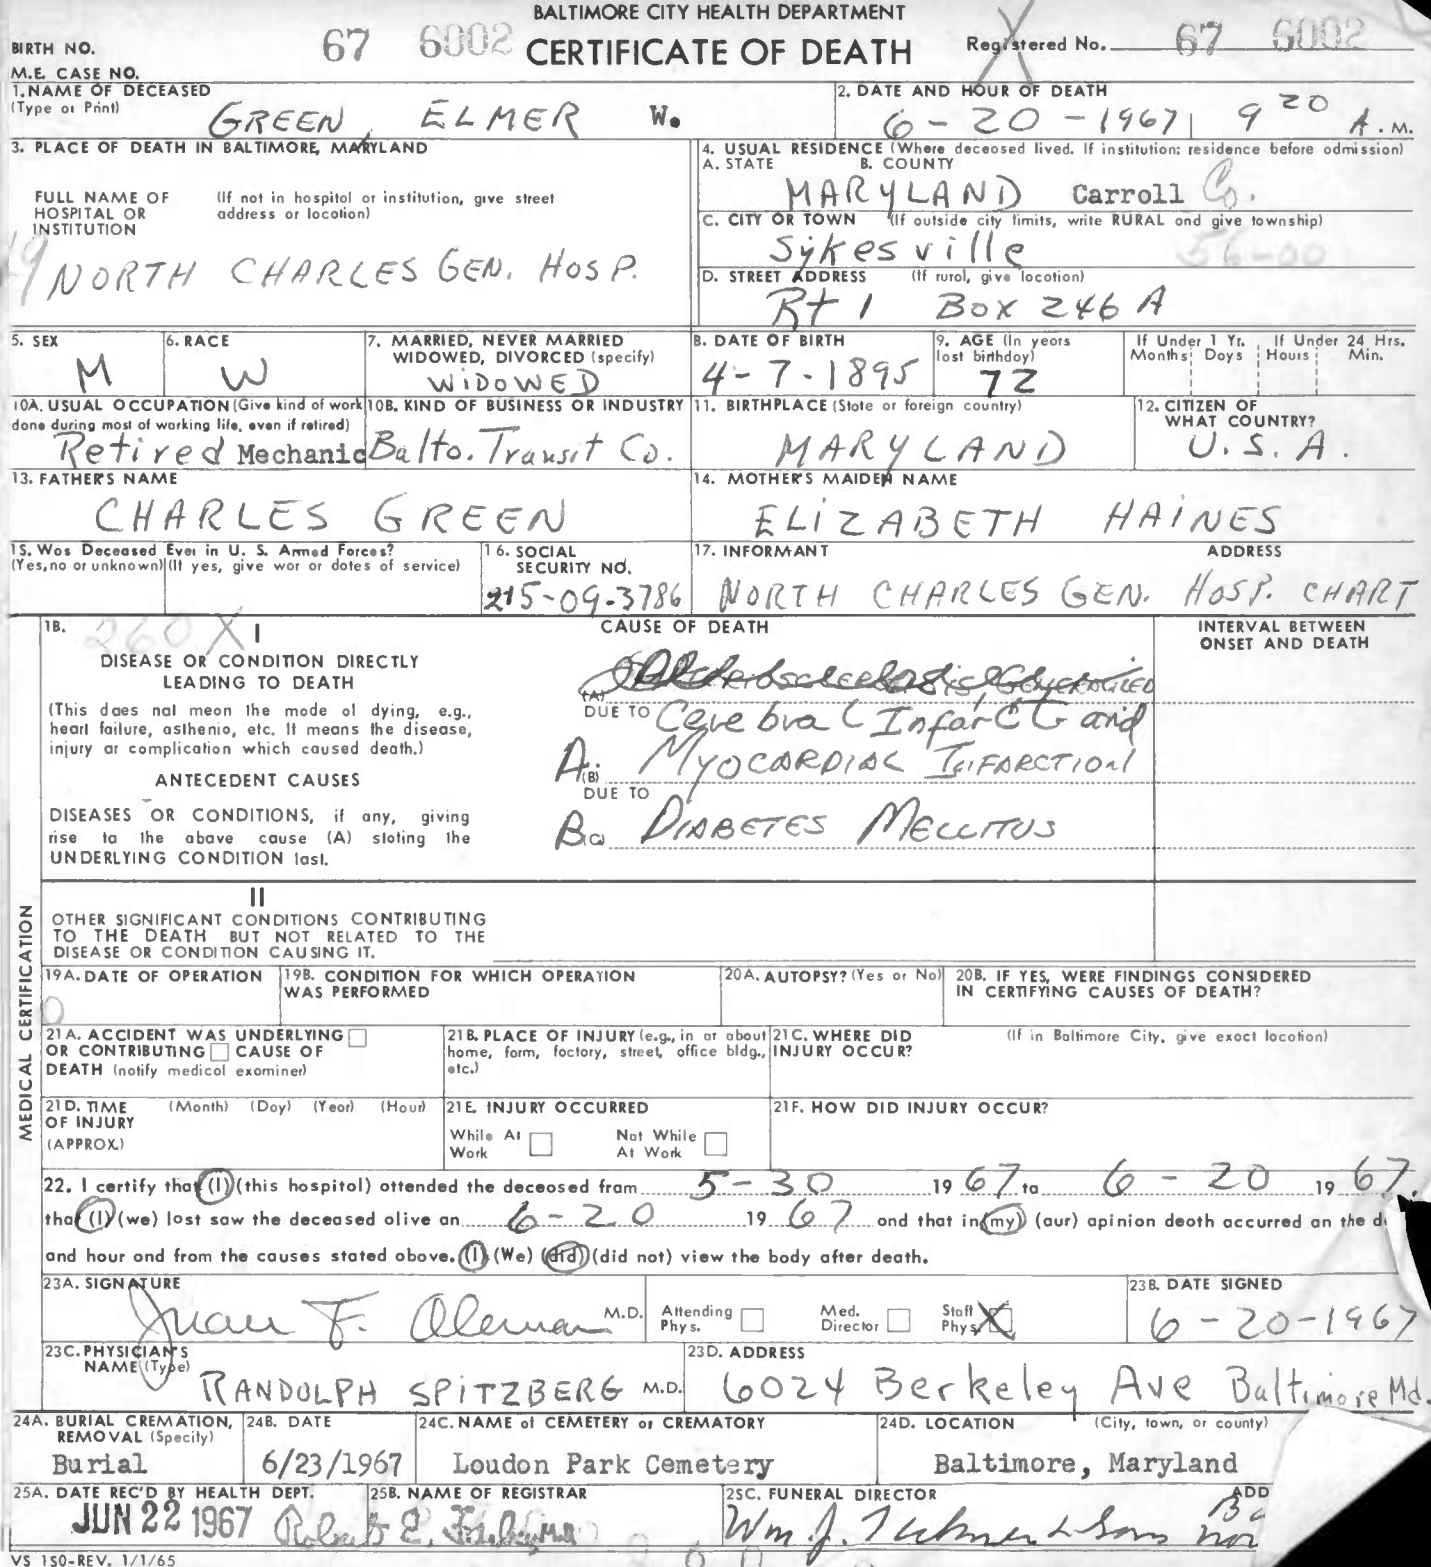 BALTIMORE CITY HEALTH DEPARTMENT
BIRTH NO. 67 6002 CERTIFICATE OF DEATH Registered No. 67 6002
M.E. CASE NO.
1. NAME OF DECEASED (Type or Print) GREEN, ELMER W.
2. DATE AND HOUR OF DEATH 6-20-1967 9 20 A.M.
3. PLACE OF DEATH IN BALTIMORE, MARYLAND
FULL NAME OF HOSPITAL OR INSTITUTION (If not in hospital or institution, give street address or location)
NORTH CHARLES GEN. HOSP.
4. USUAL RESIDENCE (Where deceased lived. If institution: residence before admission)
A. STATE B. COUNTY
MARYLAND Carroll Co.
C. CITY OR TOWN (If outside city limits, write RURAL and give township)
Sykesville
56-00
D. STREET ADDRESS (If rural, give location)
Rt 1 Box 246 A
5. SEX M
6. RACE W
7. MARRIED, NEVER MARRIED WIDOWED, DIVORCED (specify) WIDOWED
8. DATE OF BIRTH 4-7-1895
9. AGE (In years last birthday) 72
If Under 1 Yr. Months Days
If Under 24 Hrs. Hours Min.
10A. USUAL OCCUPATION (Give kind of work done during most of working life, even if retired) Retired Mechanic
10B. KIND OF BUSINESS OR INDUSTRY Balto. Transit Co.
11. BIRTHPLACE (State or foreign country) MARYLAND
12. CITIZEN OF WHAT COUNTRY? U.S.A.
13. FATHER'S NAME
CHARLES GREEN
14. MOTHER'S MAIDEN NAME
ELIZABETH HAINES
15. Was Deceased Ever in U. S. Armed Forces?
(Yes, no or unknown) (If yes, give war or dates of service)
16. SOCIAL SECURITY NO.
215-09-3786
17. INFORMANT ADDRESS
NORTH CHARLES GEN. HOSP. CHART
MEDICAL CERTIFICATION
18. 260 X I
CAUSE OF DEATH
INTERVAL BETWEEN ONSET AND DEATH
DISEASE OR CONDITION DIRECTLY LEADING TO DEATH
(This does not mean the mode of dying, e.g., heart failure, asthenia, etc. It means the disease, injury or complication which caused death.)
ANTECEDENT CAUSES
DISEASES OR CONDITIONS, if any, giving rise to the above cause (A) stating the UNDERLYING CONDITION last.
(A)
DUE TO Cerebral Infarct and
A. (B) MYOCARDIAL INFARCTION
DUE TO
B. (C) DIABETES MELLITUS
II
OTHER SIGNIFICANT CONDITIONS CONTRIBUTING TO THE DEATH BUT NOT RELATED TO THE DISEASE OR CONDITION CAUSING IT.
19A. DATE OF OPERATION 0
19B. CONDITION FOR WHICH OPERATION WAS PERFORMED
20A. AUTOPSY? (Yes or No)
20B. IF YES, WERE FINDINGS CONSIDERED IN CERTIFYING CAUSES OF DEATH?
21A. ACCIDENT WAS UNDERLYING OR CONTRIBUTING CAUSE OF DEATH (notify medical examiner)
21B. PLACE OF INJURY (e.g., in or about home, farm, factory, street, office bldg., etc.)
21C. WHERE DID INJURY OCCUR? (If in Baltimore City, give exact location)
21D. TIME OF INJURY (APPROX.) (Month) (Day) (Year) (Hour)
21E. INJURY OCCURRED
While At Work Not While At Work
21F. HOW DID INJURY OCCUR?
22. I certify that (I) (this hospital) attended the deceased from 5-30 19 67 to 6-20 19 67.
that (I) (we) last saw the deceased alive on 6-20 19 67 and that in (my) (our) opinion death occurred on the d
and hour and from the causes stated above. (I) (We) (did) (did not) view the body after death.
23A. SIGNATURE
Juan F. Aleman M.D.
Attending Phys. Med. Director Staff Phys. X
23B. DATE SIGNED
6-20-1967
23C. PHYSICIAN'S NAME (Type)
RANDOLPH SPITZBERG M.D.
23D. ADDRESS
6024 Berkeley Ave Baltimore Md.
24A. BURIAL CREMATION, REMOVAL (Specify)
Burial
24B. DATE
6/23/1967
24C. NAME of CEMETERY or CREMATORY
Loudon Park Cemetery
24D. LOCATION (City, town, or county)
Baltimore, Maryland
25A. DATE REC'D BY HEALTH DEPT.
JUN 22 1967
25B. NAME OF REGISTRAR
Robert E. Farber M.D.
25C. FUNERAL DIRECTOR ADD
Wm. J. Tickner & Sons
VS 150-REV. 1/1/65